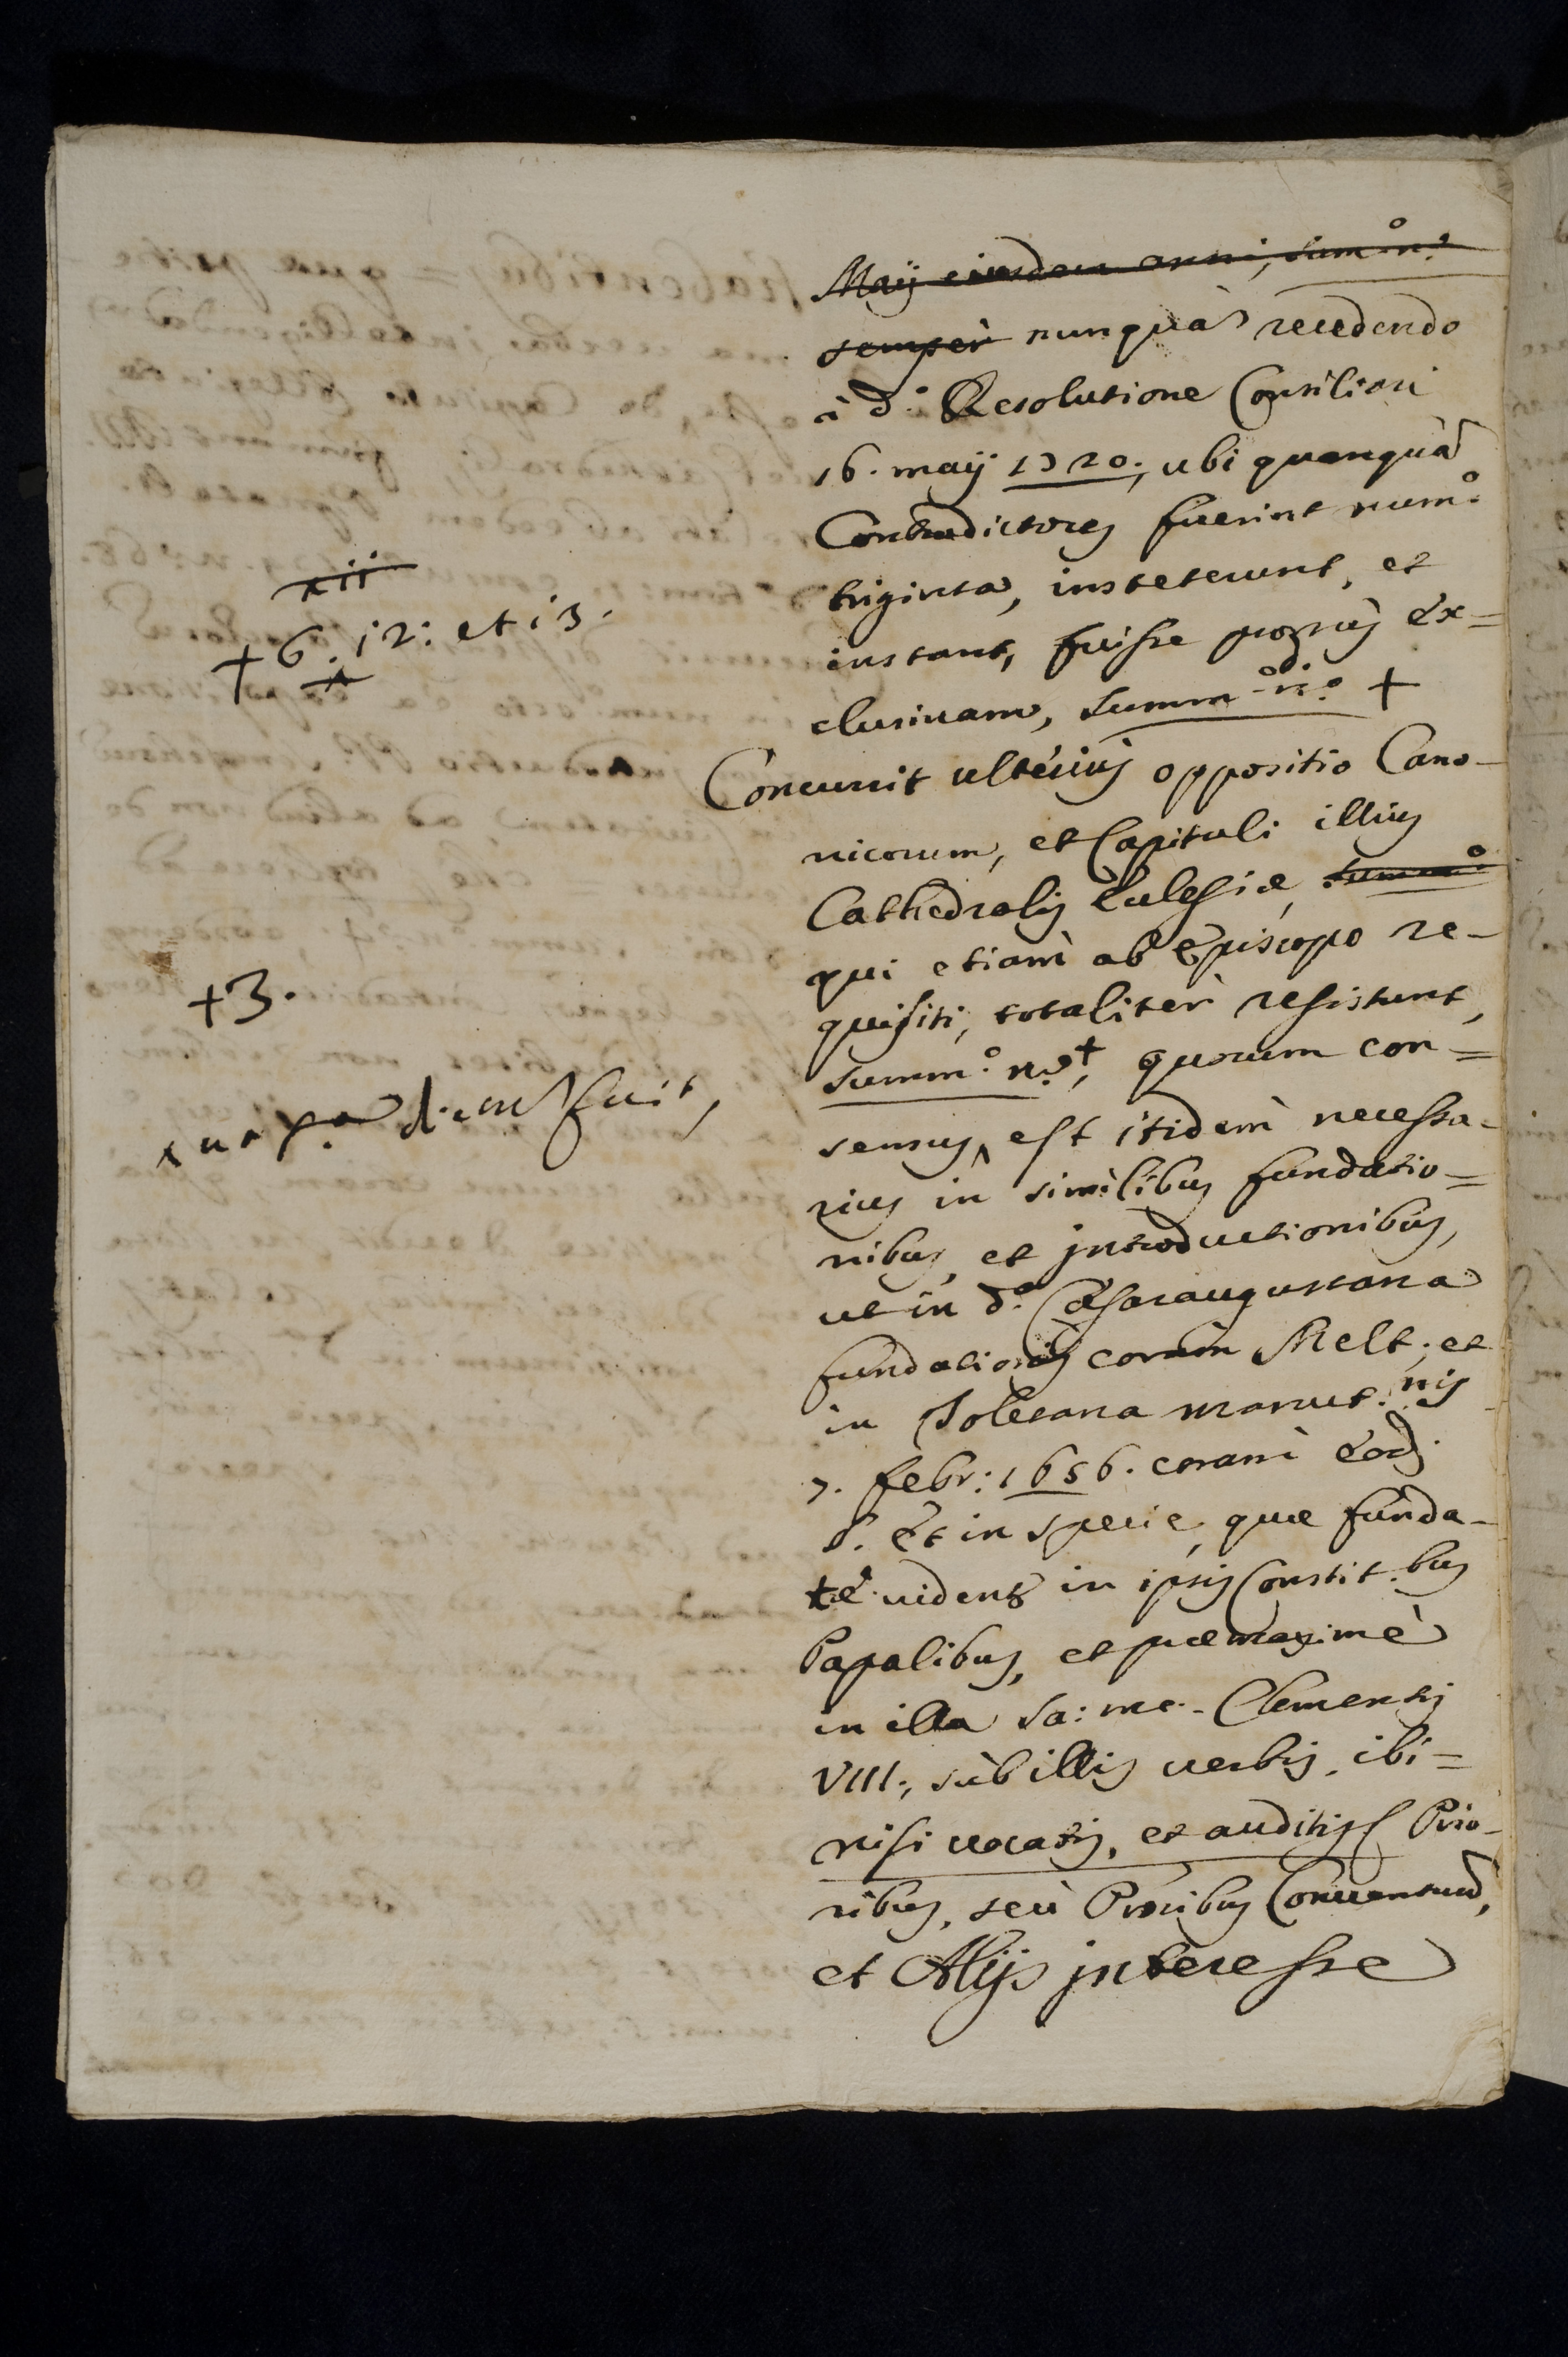 Maij eiusdem anni, sum.º n.º
semper nunquã recedendo
à d.ª Resolutione Consiliari
16. maij 1720., ubi quanquã
Contradictores fuerint num.º
triginta, insteterunt, et
xii
+ 6. 12: et 13.
instant, fuisse prorsus ex=
clusivam, summ.º n.º +
Concurrit ulterius oppositio Cano-
nicorum, et Capituli illius
Cathedralis Ecclesiæ, summ.º
qui etiam ab Episcopo re-
+ 3.
quisiti, totaliter resistunt,
summ.º n.º +, quorum con=
sensus, est itidem necessa-
rius in similibus fundatio=
nibus, et introductionibus,
ut in d.ª Cæsaraugustana
fundationis coram Melt; et
in Toletana manut.nis
7. febr: 1656. coram eod;
S. Et in specie, quæ funda-
tæ vident in ipsis Constit.bus
Papalibus, et præmaxime
in illa sa: me. Clementis
VIII., sub illis verbis, ibi=
nisi vocatis, et auditis Prio-
ribus, seù Prioribus Conventuũ,
et Alijs interesse